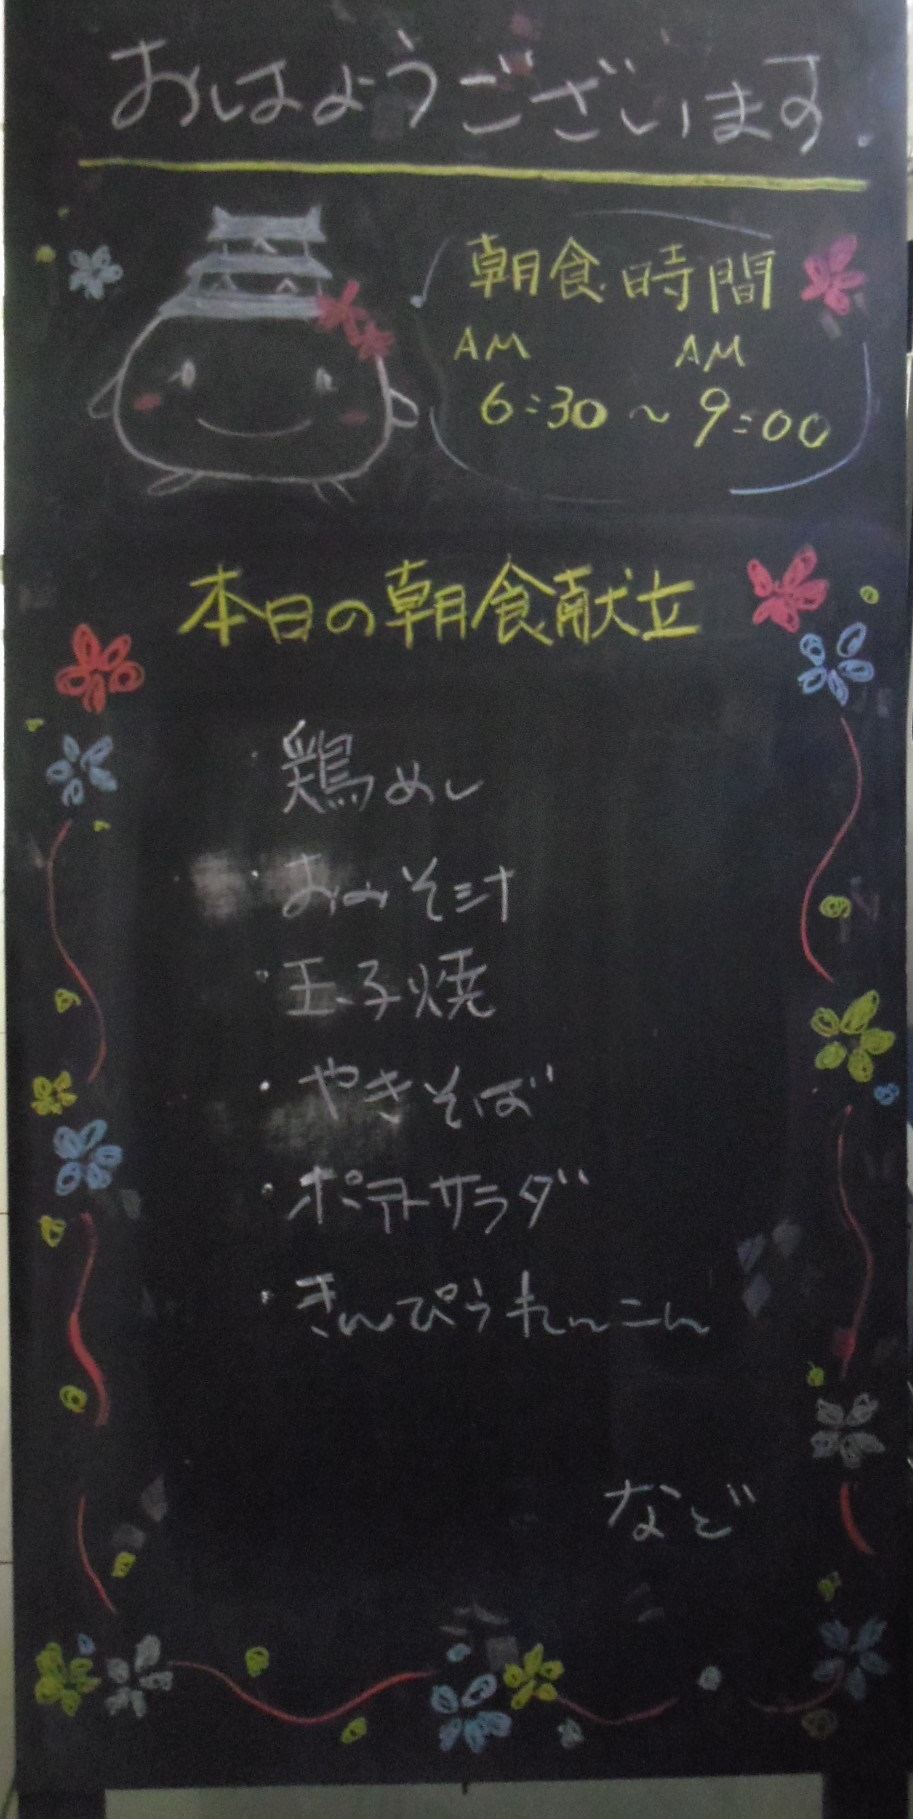 おはようございます.
朝食時間
AM AM
6:30～9:00
本日の朝食献立
・鶏めし
・おみそ汁
・玉子焼
・やきそば
・ポテトサラダ
・きんぴられんこん
など